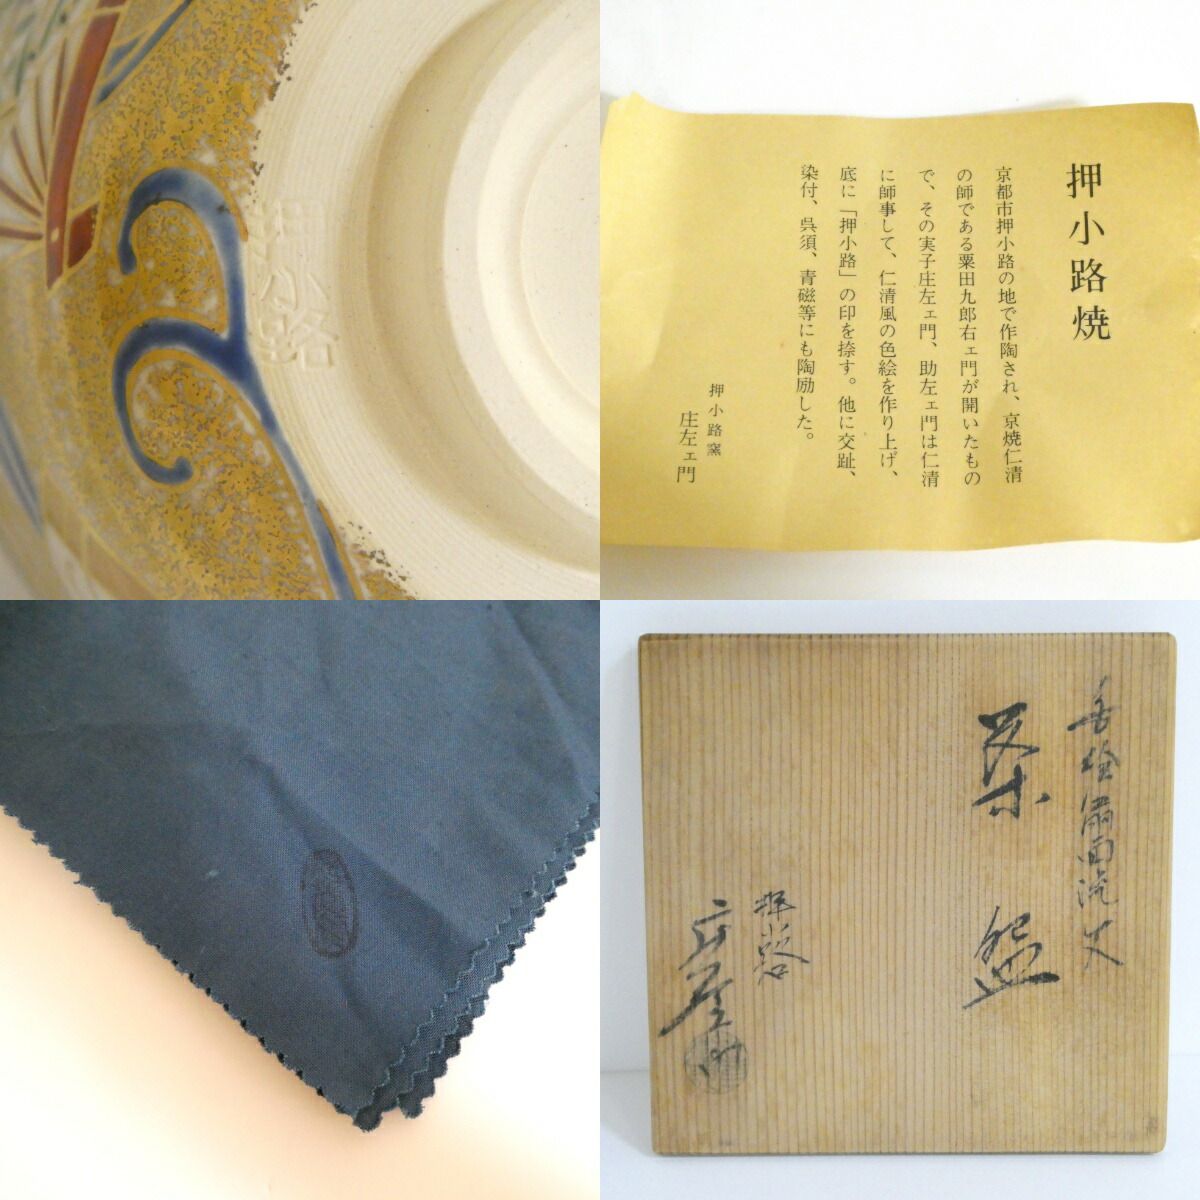 押小路
押小路焼
京都市押小路の地で作陶され、京焼仁清
の師である粟田九郎右ェ門が開いたもの
で、その実子庄左ェ門、助左ェ門は仁清
に師事して、仁清風の色絵を作り上げ、
底に「押小路」の印を捺す。他に交趾、
染付、呉須、青磁等にも陶励した。
押小路窯
庄左ェ門
菓
盌
押小路
庄左